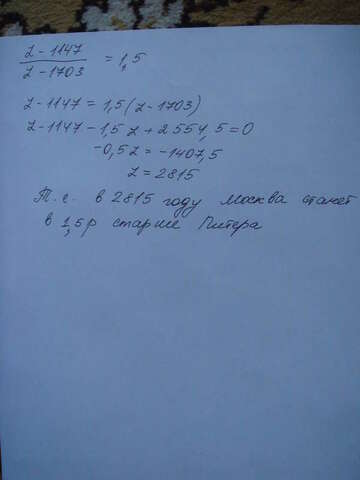 z - 1147
z - 1703
= 1,5
z - 1147 = 1,5 (z - 1703)
z - 1147 - 1,5 z + 2554,5 = 0
-0,5 z = -1407,5
z = 2815
Т.е. в 2815 году Москва станет
в 1,5 р старше Питера